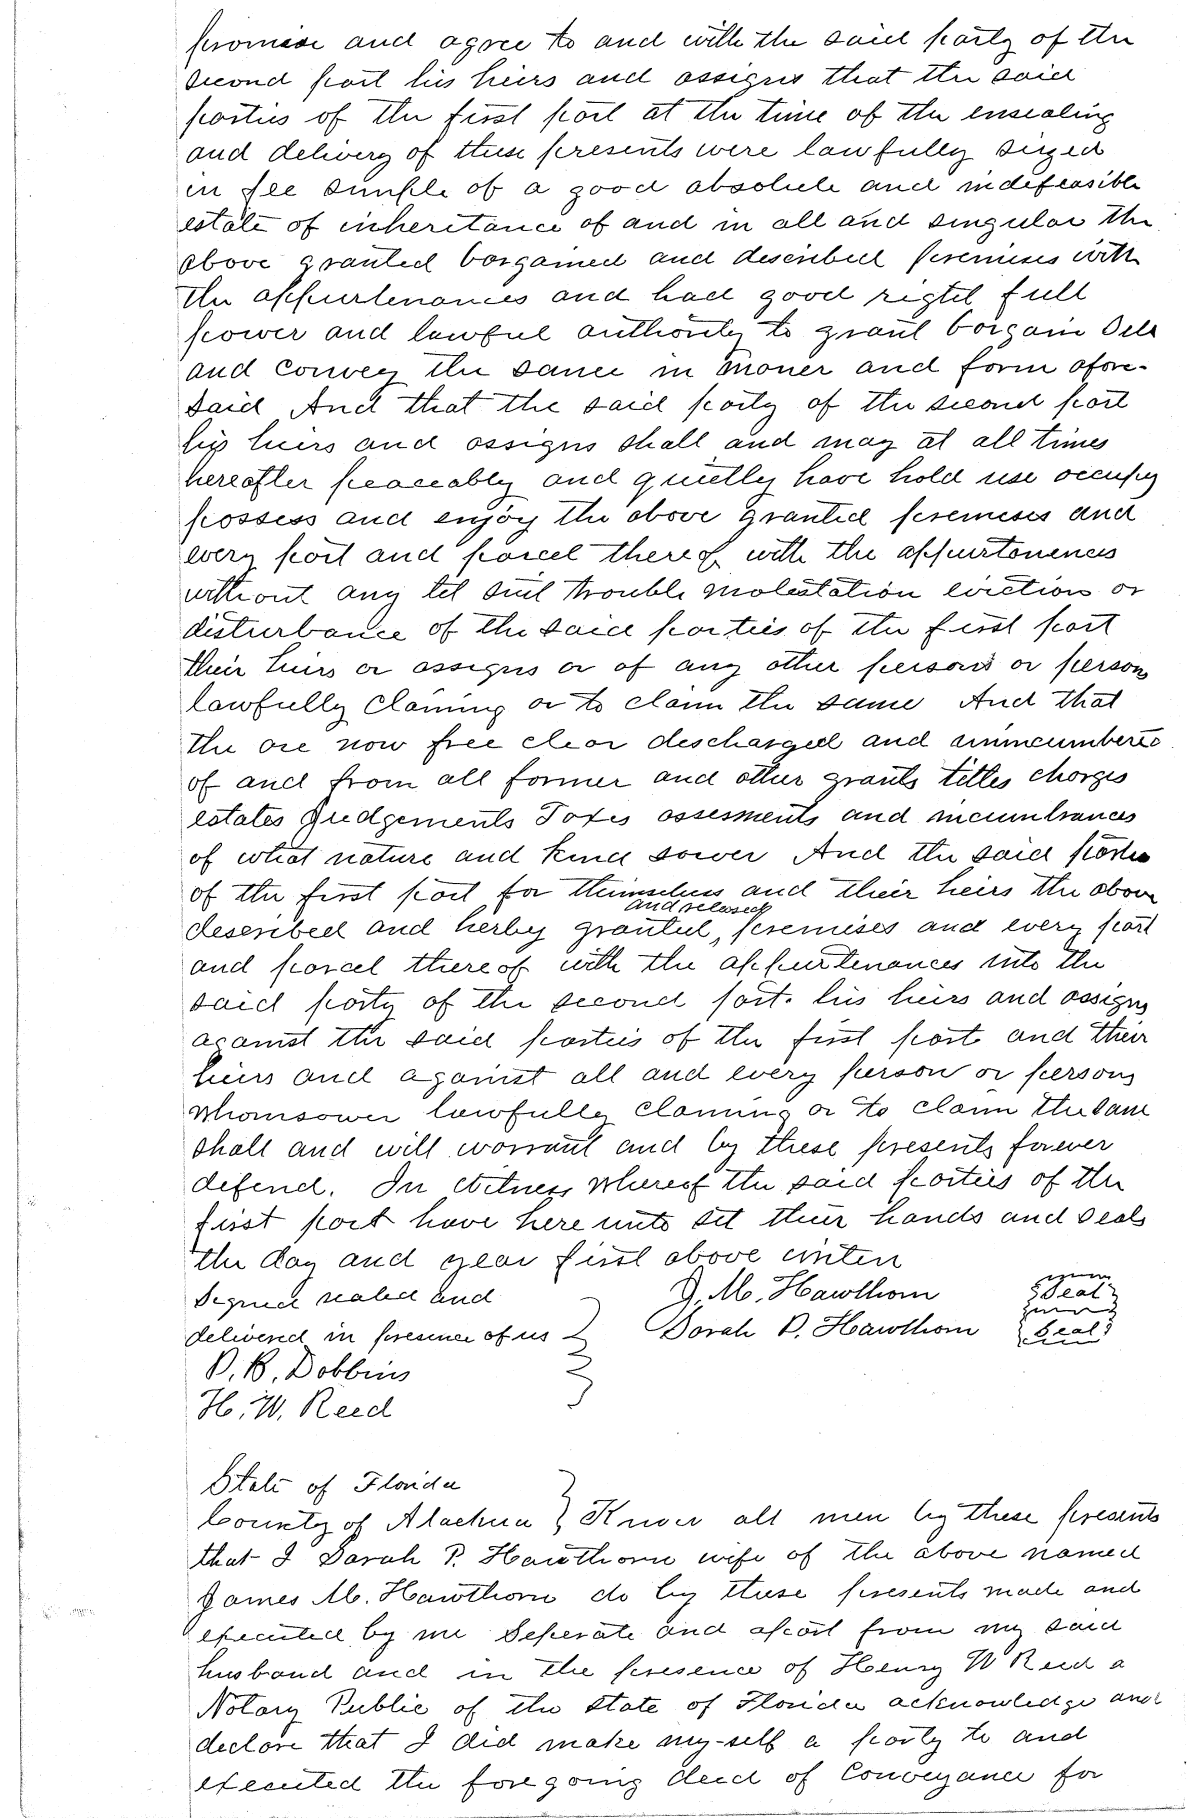 promise and agree to and with the said party of the
second part his heirs and assigns that the said
parties of the first part at the time of the ensealing
and delivery of these presents were lawfully siezed
in fee simple of a good absolute and indefeasible
estate of inheritance of and in all and singular the
above granted bargained and described premises with
the appurtenances and had good rigtht full
power and lawful authority to grant bargain Sell
and convey the same in maner and form afore-
said And that the said party of the second part
his heirs and assigns shall and may at all times
hereafter peaceably and quietly have hold use occupy
possess and enjoy the above granted premeses and
every part and parcel thereof with the appurtenences
without any let suit trouble molestation eviction or
disturbance of the said parties of the first part
their heirs or assigns or of any other persons or person
lawfully claming or to claim the same And that
the are now free clear descharged and unincumbered
of and from all former and other grants titles charges
estates Judgements Taxes assesments and incumbrances
of what nature and kind soever And the said parties
of the first part for themselves and their heirs the above
and released
described and herby granted, premises and every part
and parcel thereof with the appurtenances into the
said party of the second part. his heirs and assigns
against the said parties of the first part and their
heirs and against all and every person or persons
whomsower lawfully claming or to claim the same
shall and will warrant and by these presents forever
defend. In Witness whereof the said parties of the
first part have here unto set their hands and seals
the day and year first above writen
Signed sealed and J. M. Hawthorn Seal
delivered in presence of us Sarah P. Hawthorn Seal
P. B. Dobbins
H. W. Reed
State of Florida
County of Alachua } Know all men by these presents
that I Sarah P. Hawthorn wife of the above named
James M. Hawthorn do by these presents made and
executed by me Seperate and apart from my said
husband and in the presence of Henry W Reed a
Notary Public of the State of Florida acknowledge and
declare that I did make my-self a party to and
executed the foregoing deed of Conveyance for